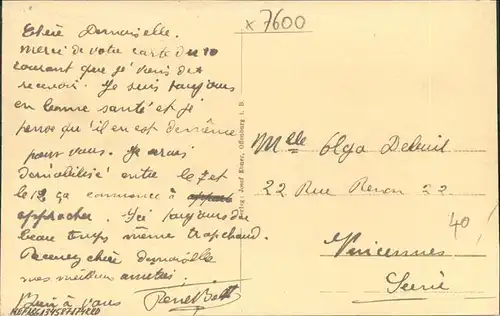 x 7600
Chère Demoiselle.
Merci de votre carte du 10
courant que je viens de
recevoir. Je suis toujours
en bonne santé et je
pense qu'il en est de même
pour vous. Je serai
démobilisé entre le 7 et
le 12 ça commence à
approcher. Ici toujours du
beau temps même trop chaud.
Recevez chère demoiselle
mes meilleurs amitiés.
Bien à vous
René
Verlag: Josef Ebner, Offenburg i. B.
Mlle Olga Deleuil
22 Rue Renon 22
Vincennes
Seine
40